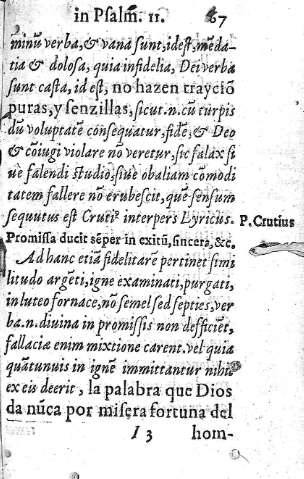 in Psalm. 11. 67
minũ verba, & vana sunt, id est, mẽda-
tia & dolosa, quia infidelia, Dei verba
sunt casta, id est, no hazen trayciõ
puras, y senzillas, sicut .n. cũ turpis
dũ voluptatẽ consequatur, fidẽ, & Deo
& cõiugi violare nõ veretur, sic falax si
ue falendi studio, siue ob aliam cõmodi
tatem fallere nõ erubescit, quẽ sensum
sequutus est Crutiꝰ interpers Lyricus.
P. Crutius
Promissa ducit sẽper in exitũ, sincera, &c.
Ad hanc etiã fidelitatẽ pertinet simi
litudo argẽti, igne examinati, purgati,
in luteo fornace, nõ semel sed septies, ver
ba .n. diuina in promissis non deficiẽt,
fallacia enim mixtione carent. vel quia
quãtunuis in ignẽ immittantur nihil
ex eis deerit, la palabra que Dios
da nũca por misera fortuna del
I 3 hom-